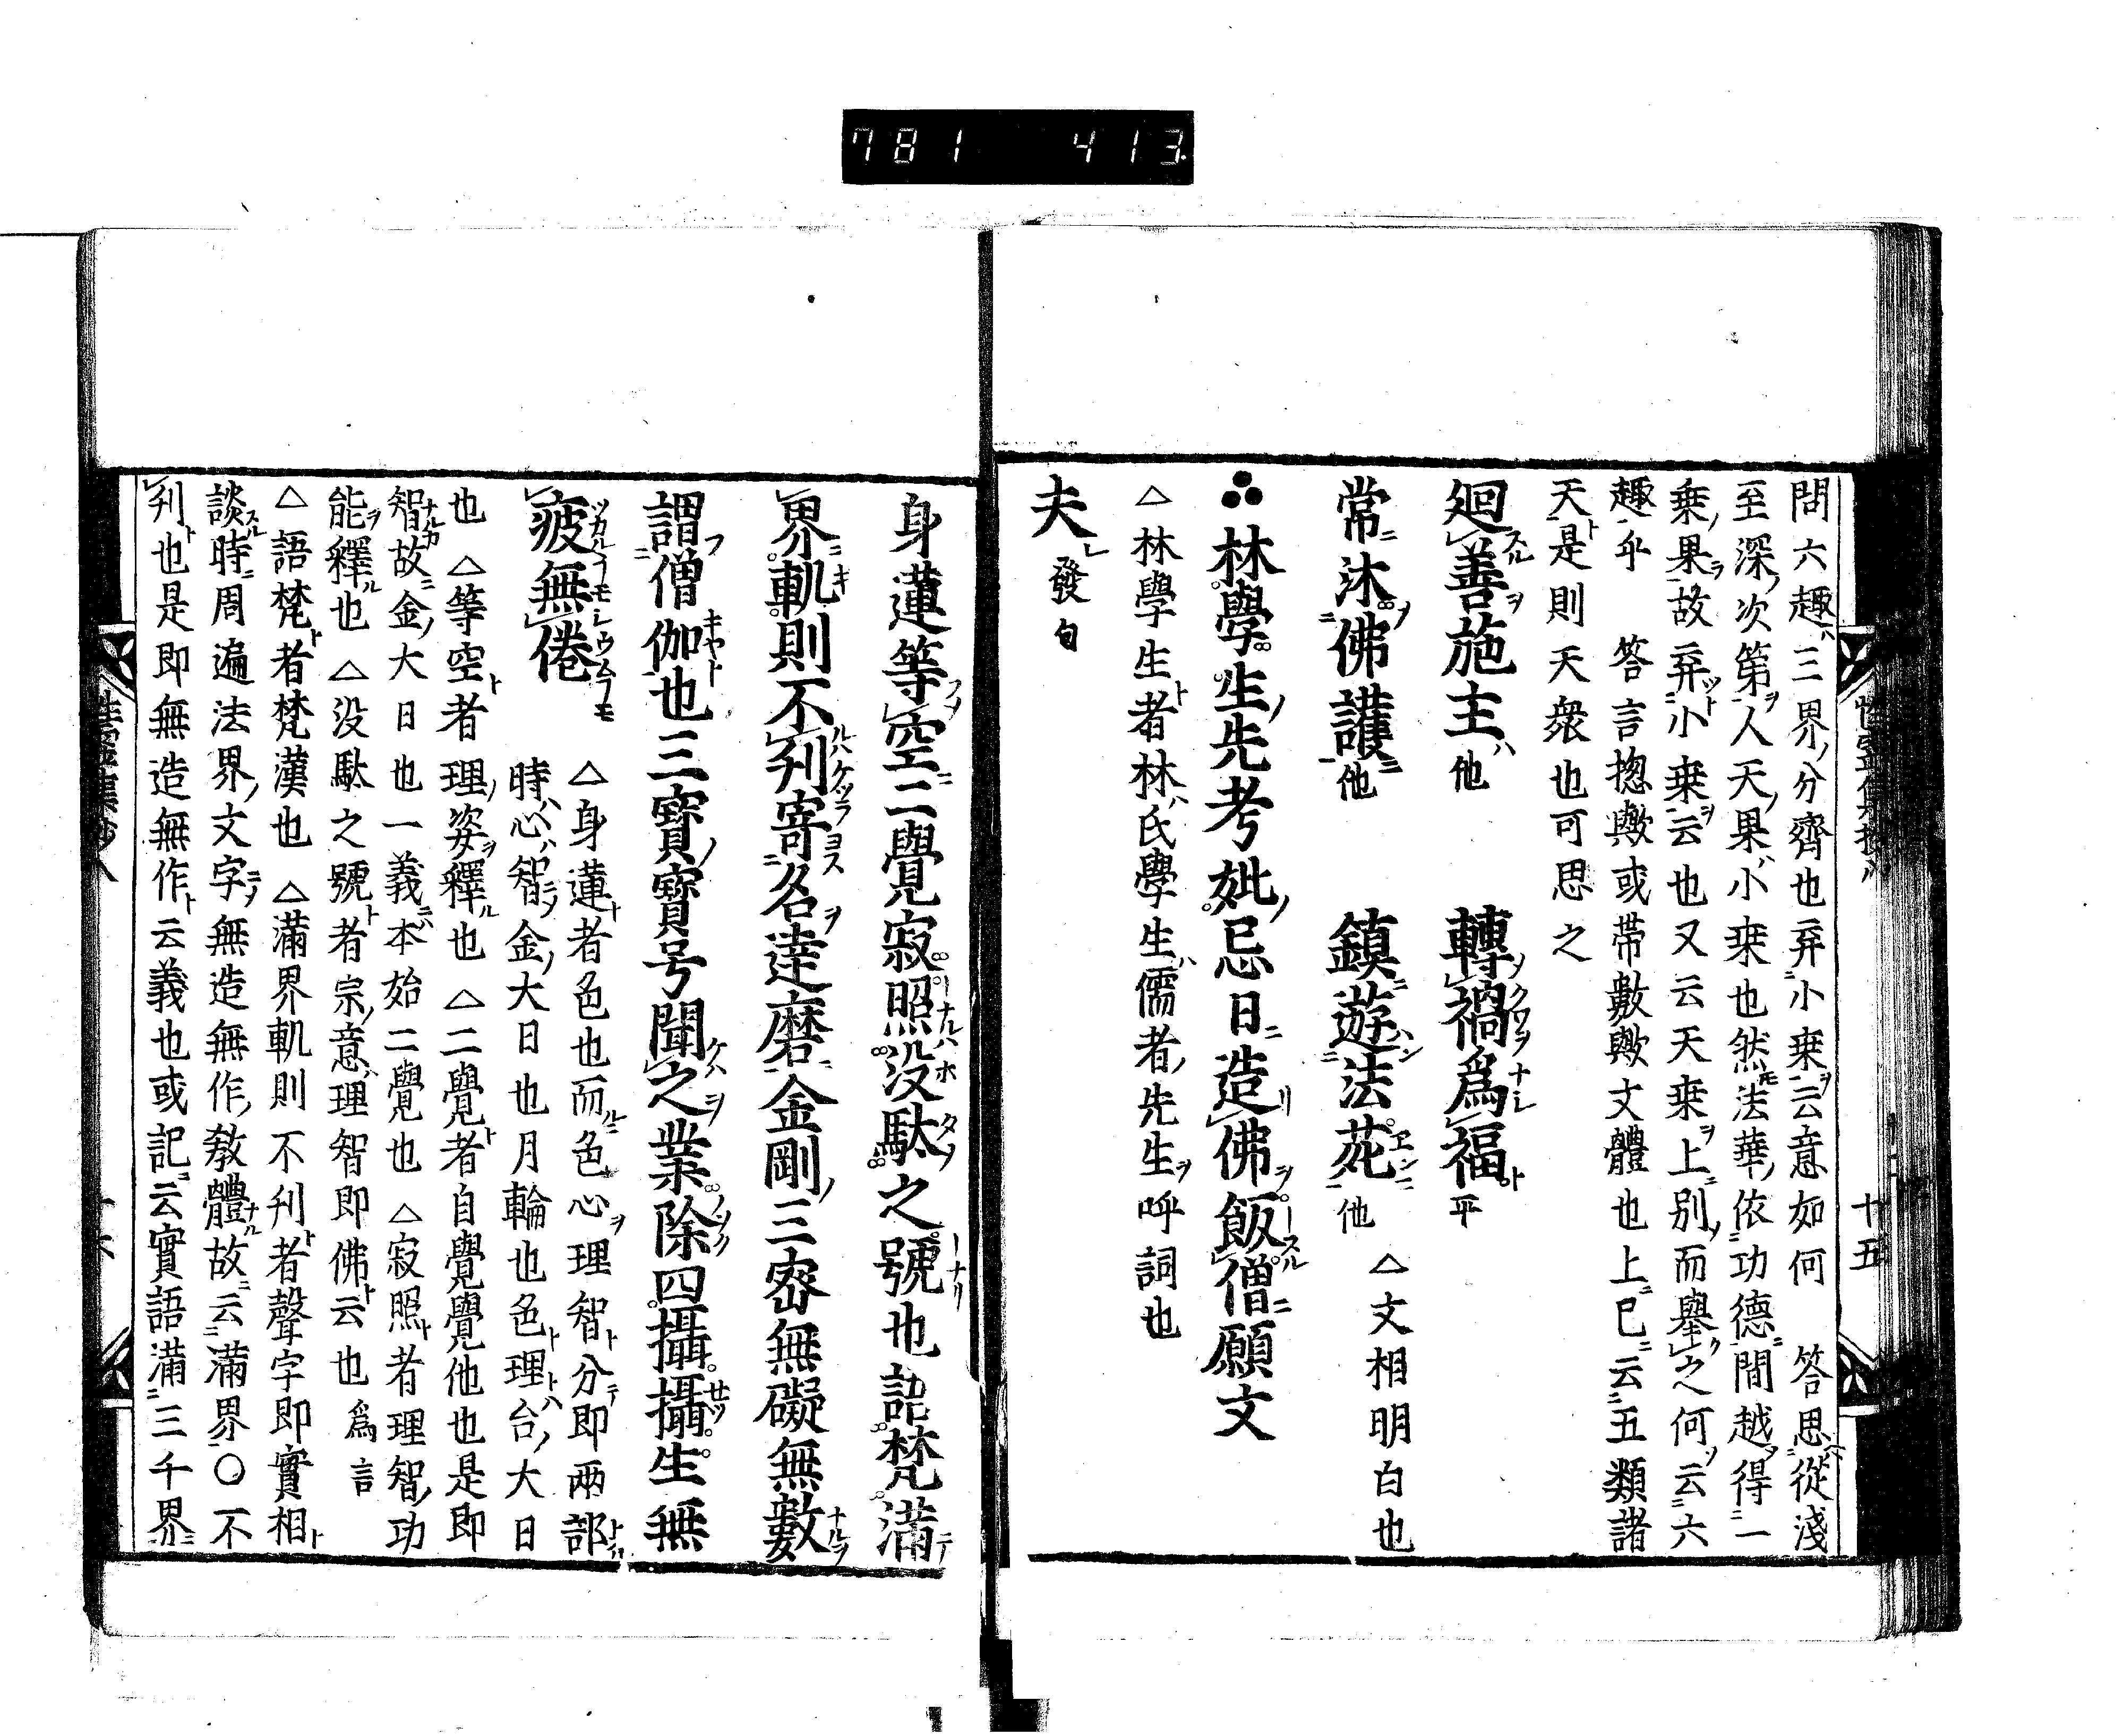 781 413
十五
問六趣三界分齊也弃小乗云意如何　答思從淺
至深次第人天果小乗也然法華依功德間越得一
乗果故弃小乗云也又云天乗上別而舉之何云六
趣乎　答言揔歟或帶數歟文體也上已云五類諸
天是則天衆也可思之
廻善施主他　轉禍爲福平
常沐佛護他　鎮遊法苑他　△文相明白也
林學生先考妣忌日造佛飯僧願文
△林學生者林氏學生儒者先生呼詞也
夫發句
身蓮等空二覺寂照没駄之號也語梵滿
界軌則不刋寄名達磨金剛三密無礙無數
謂僧伽也三寶寶号聞之業除四攝攝生無
疲無倦　△身蓮者色也而色心理智分即兩部
時心智金大日也月輪也色理台大日
也△等空者理姿釋也△二覺者自覺覺他也是即
智故金大日也一義本始二覺也△寂照者理智功
能釋也△没駄之號者宗意理智即佛云也爲言
△語梵者梵漢也△滿界軌則不刋者聲字即實相
談時周遍法界文字無造無作教體故云滿界〇不
刋也是即無造無作云義也或記云實語滿三千界